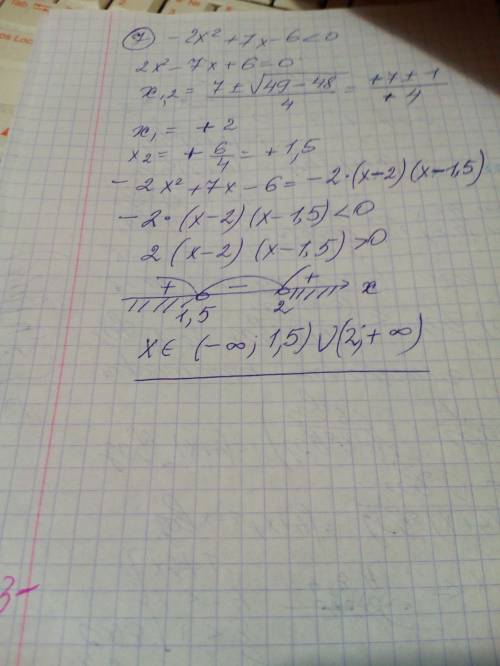 ⑦ -2x² + 7x - 6 < 0
2x² - 7x + 6 = 0
x₁,₂ = (7 ± √(49 - 48))/4 = (+7 ± 1)/(+4)
x₁ = + 2
x₂ = + 6/4 = + 1,5
- 2x² + 7x - 6 = -2·(x-2)(x-1,5)
-2·(x-2)(x-1,5) < 0
2(x-2)(x-1,5) > 0
+ - + x
1,5 2
x ∈ (-∞; 1,5) ∪ (2; +∞)
3-